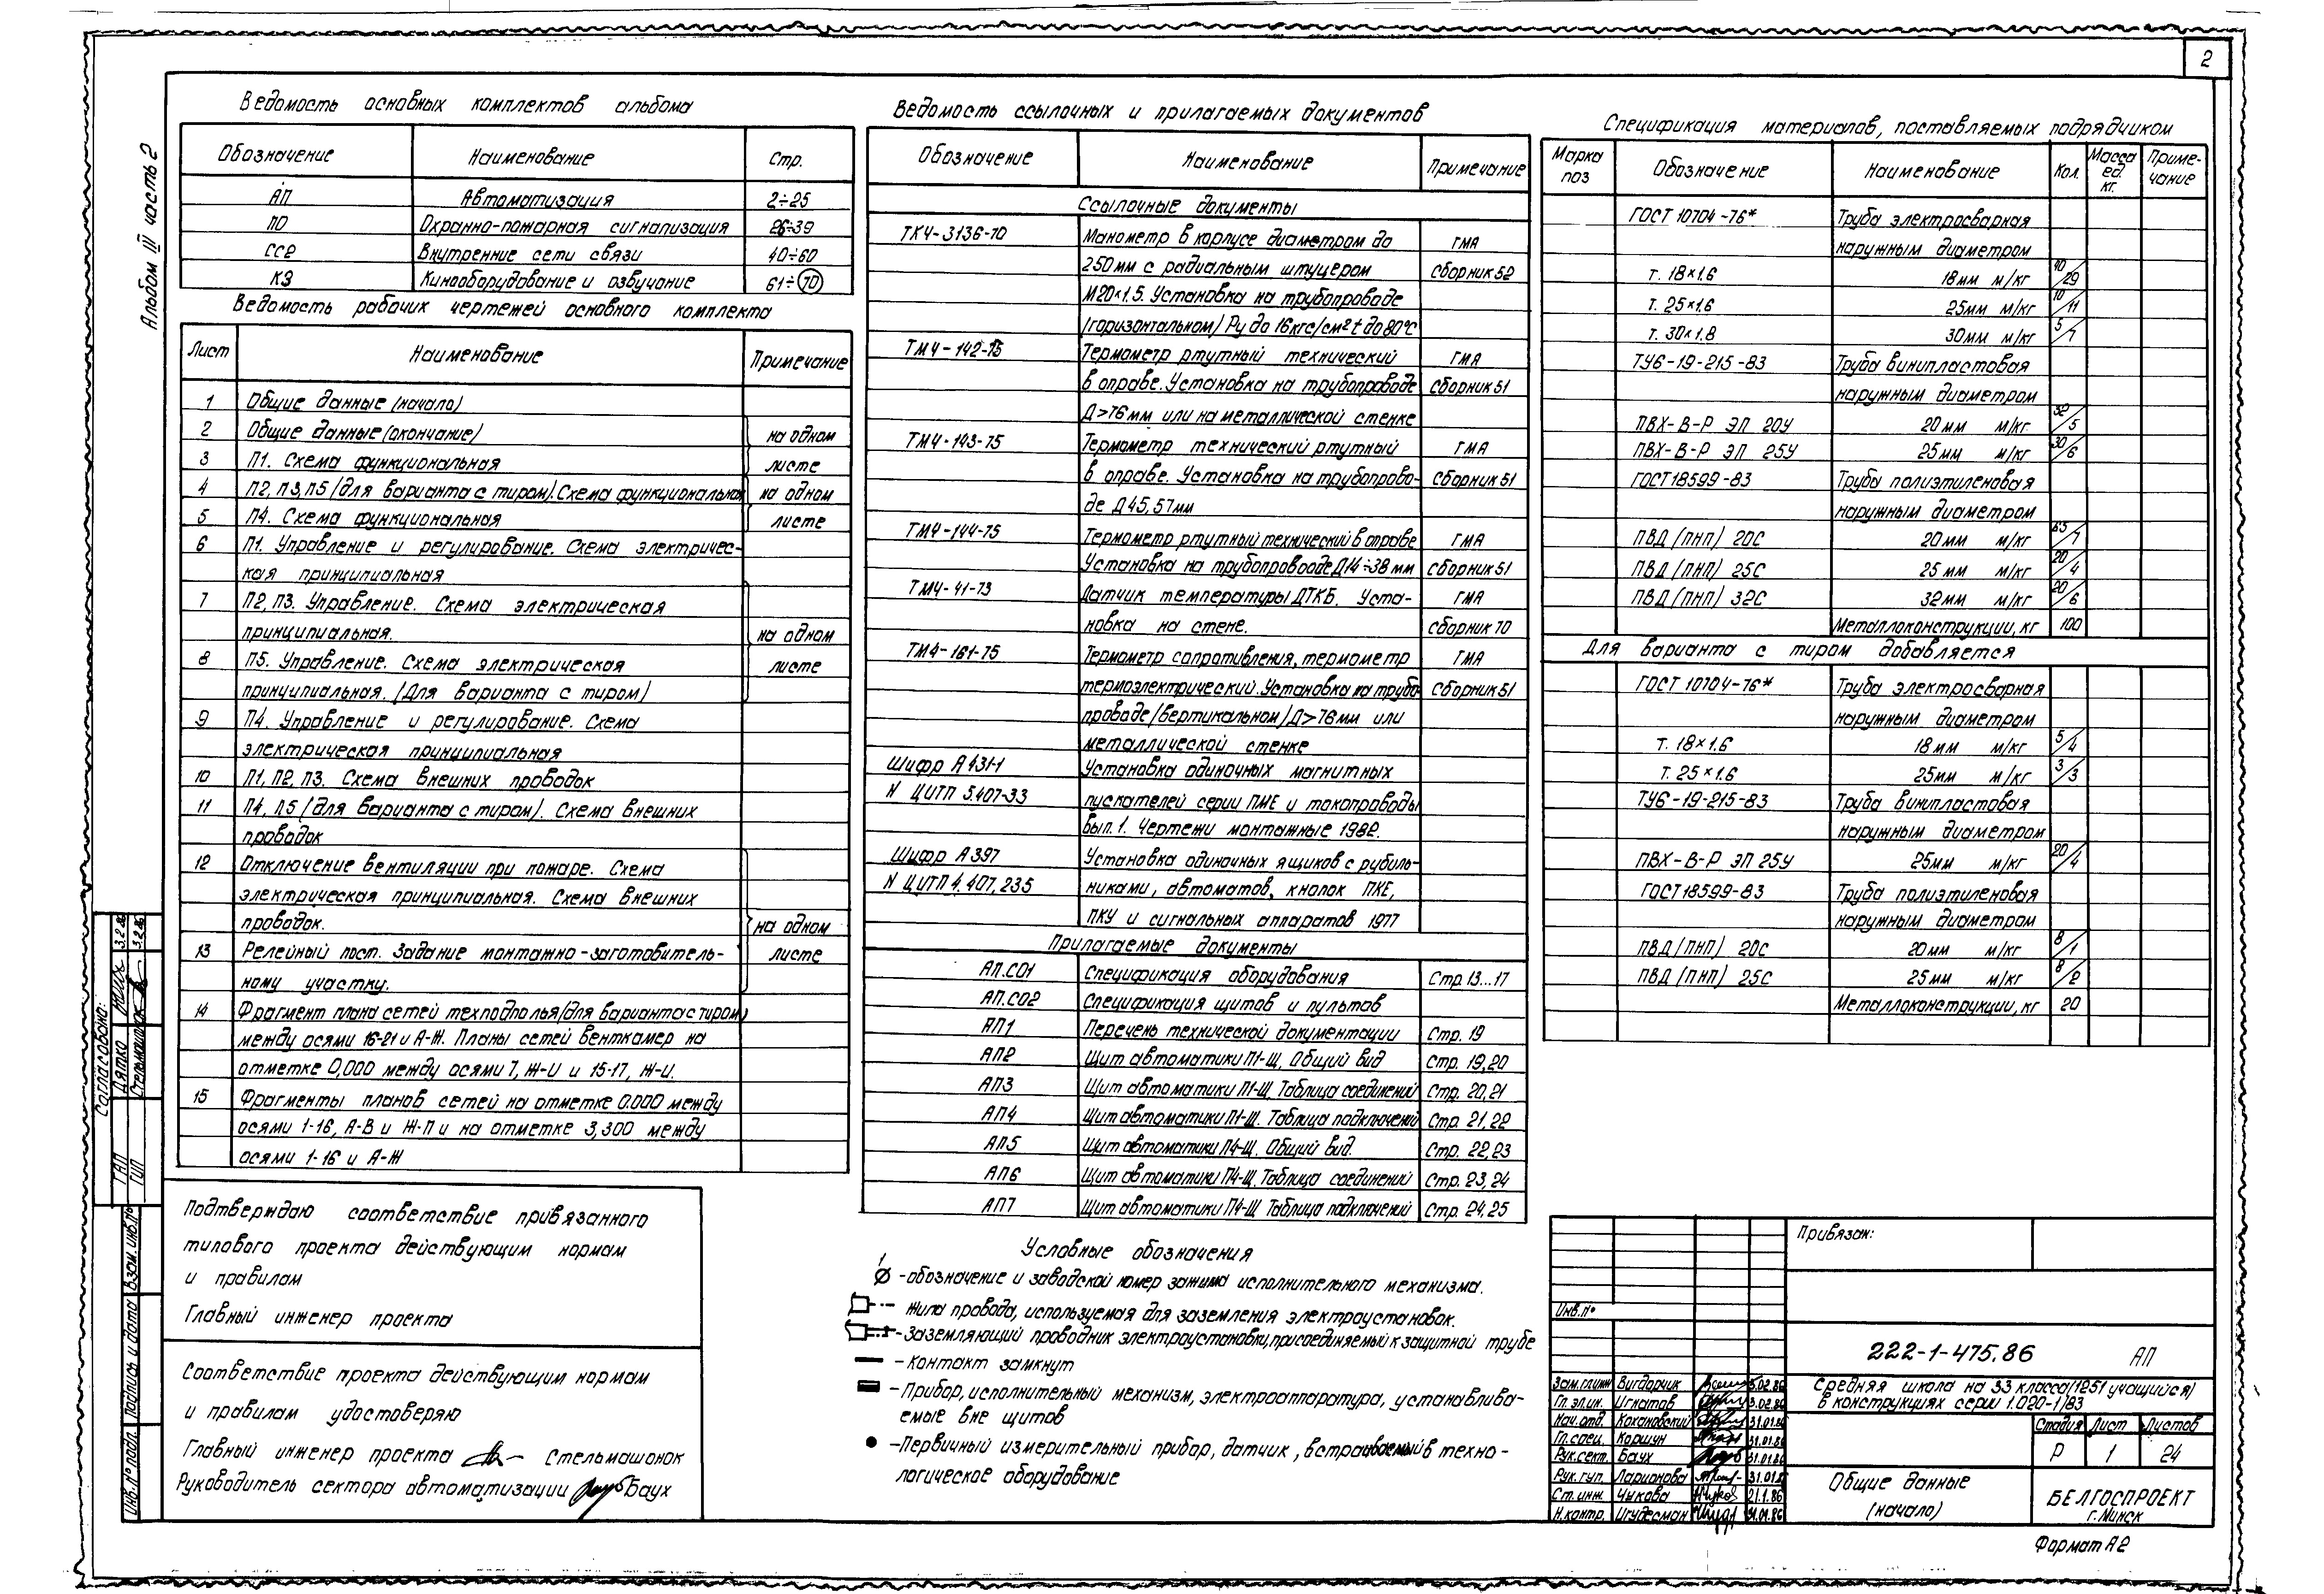 2
Альбом III часть 2
Ведомость основных комплектов альбома
Обозначение Наименование Стр.
АП Автоматизация 2÷25
ПО Охранно-пожарная сигнализация 26÷39
СС2 Внутренние сети связи 40÷60
КЭ Кинооборудование и озвучание 61÷70
Ведомость рабочих чертежей основного комплекта
Лист Наименование Примечание
1 Общие данные (начало)
2 Общие данные (окончание) на одном
3 П1. Схема функциональная листе
4 П2, П3, П5 /для варианта с тиром/. Схема функциональная на одном
5 П4. Схема функциональная листе
6 П1. Управление и регулирование. Схема электричес-
кая принципиальная
7 П2, П3. Управление. Схема электрическая
принципиальная. на одном
8 П5. Управление. Схема электрическая листе
принципиальная. /Для варианта с тиром/
9 П4. Управление и регулирование. Схема
электрическая принципиальная
10 П1, П2, П3. Схема внешних проводок
11 П4, П5 /для варианта с тиром/. Схема внешних
проводок
12 Отключение вентиляции при пожаре. Схема
электрическая принципиальная. Схема внешних
проводок. на одном
13 Релейный пост. Задание монтажно-заготовитель- листе
ному участку.
14 Фрагмент плана сетей техподполья/для варианта с тиром/
между осями 16-21 и А-Ж. Планы сетей венткамер на
отметке 0,000 между осями 7, Ж-И и 15-17, Ж-И.
15 Фрагменты планов сетей на отметке 0.000 между
осями 1-16, А-В и Ж-П и на отметке 3,300 между
осями 1-16 и А-Ж
Подтверждаю соответствие привязанного
типового проекта действующим нормам
и правилам
Главный инженер проекта
Соответствие проекта действующим нормам
и правилам удостоверяю
Главный инженер проекта Стельмашонок
Руководитель сектора автоматизации Баух
Ведомость ссылочных и прилагаемых документов
Обозначение Наименование Примечание
Ссылочные документы
ТК4-3136-70 Манометр в корпусе диаметром до ГМА
250мм с радиальным штуцером сборник 52
М20×1.5. Установка на трубопроводе
/горизонтальном/ Ру до 16кгс/см² t до 80°С
ТМ4-142-75 Термометр ртутный технический ГМА
в оправе. Установка на трубопроводе сборник 51
Д>76мм или на металлической стенке
ТМ4-143-75 Термометр технический ртутный ГМА
в оправе. Установка на трубопрово- сборник 51
де Д45,57мм
ТМ4-144-75 Термометр ртутный технический в оправе ГМА
Установка на трубопровооде Д14÷38мм сборник 51
ТМ4-41-73 Датчик температуры ДТКБ. Уста- ГМА
новка на стене. сборник 70
ТМ4-161-75 Термометр сопротивления, термометр ГМА
термоэлектрический. Установка на трубо- сборник 51
проводе/вертикальном/Д>76мм или
металлической стенке
Шифр А431-1 Установка одиночных магнитных
N ЦИТП 5.407-33 пускателей серии ПМЕ и токопроводы
вып. 1. Чертежи монтажные 1982.
Шифр А397 Установка одиночных ящиков с рубиль-
N ЦИТП 4.407.235 никами, автоматов, кнопок ПКЕ,
ПКУ и сигнальных аппаратов 1977
Прилагаемые документы
АП.СО1 Спецификация оборудования Стр. 13...17
АП.СО2 Спецификация щитов и пультов
АП1 Перечень технической документации Стр. 19
АП2 Щит автоматики П1-Щ. Общий вид Стр. 19,20
АП3 Щит автоматики П1-Щ. Таблица соединений Стр. 20,21
АП4 Щит автоматики П1-Щ. Таблица подключений Стр. 21,22
АП5 Щит автоматики П4-Щ. Общий вид. Стр. 22,23
АП6 Щит автоматики П4-Щ. Таблица соединений Стр. 23,24
АП7 Щит автоматики П4-Щ. Таблица подключений Стр. 24,25
Условные обозначения
1
- обозначение и заводской номер зажима исполнительного механизма.
- Жила провода, используемая для заземления электроустановок.
- Заземляющий проводник электроустановки, присоединяемый к защитной трубе
- Контакт замкнут
- Прибор, исполнительный механизм, электроаппаратура, устанавлива-
емые вне щитов
- Первичный измерительный прибор, датчик, встраиваемый в техно-
логическое оборудование
Спецификация материалов, поставляемых подрядчиком
Марка поз Обозначение Наименование Кол. Масса ед. кг. Приме-чание
ГОСТ 10704-76* Труба электросварная
наружным диаметром
т. 18×1.6 18мм м/кг 40/29
т. 25×1.6 25мм м/кг 10/11
т. 30×1.8 30мм м/кг 5/7
ТУ6-19-215-83 Труба винипластовая
наружным диаметром
ПВХ-В-Р ЭП 20У 20мм м/кг 32/5
ПВХ-В-Р ЭП 25У 25мм м/кг 30/6
ГОСТ 18599-83 Труба полиэтиленовая
наружным диаметром
ПВД (ПНП) 20С 20мм м/кг 65/7
ПВД (ПНП) 25С 25мм м/кг 20/4
ПВД (ПНП) 32С 32мм м/кг 20/6
Металлоконструкции, кг 100
Для варианта с тиром добавляется
ГОСТ 10704-76* Труба электросварная
наружным диаметром
т. 18×1.6 18мм м/кг 5/4
т. 25×1.6 25мм м/кг 3/3
ТУ6-19-215-83 Труба винипластовая
наружным диаметром
ПВХ-В-Р ЭП 25У 25мм м/кг 20/4
ГОСТ 18599-83 Труба полиэтиленовая
наружным диаметром
ПВД (ПНП) 20С 20мм м/кг 8/1
ПВД (ПНП) 25С 25мм м/кг 8/2
Металлоконструкции, кг 20
Привязан:
Инв.N°
222-1-475.86 АП
Зам.гл.инж Вигдорчик 3.02.86
Гл.эл.ин. Игнатов 3.02.86
Нач.отд. Кохановский 31.01.86
Гл.спец. Коршун 31.01.86
Рук.сект. Баух 31.01.86
Рук.гип. Ларионова 31.01.86
Ст.инж. Чукова 21.1.86
Н.контр. Игудесман 31.01.86
Средняя школа на 33 класса(1251 учащийся)
в конструкциях серии 1.020-1/83
Стадия Лист Листов
Р 1 24
Общие данные
(начало)
БЕЛГОСПРОЕКТ
г. Минск
Формат А2
Согласовано:
ГАП Дятко 3.2.86
ГИП Стельмашонок 3.2.86
Взам. инв.N°
Подпись и дата
Инв.N° подл.